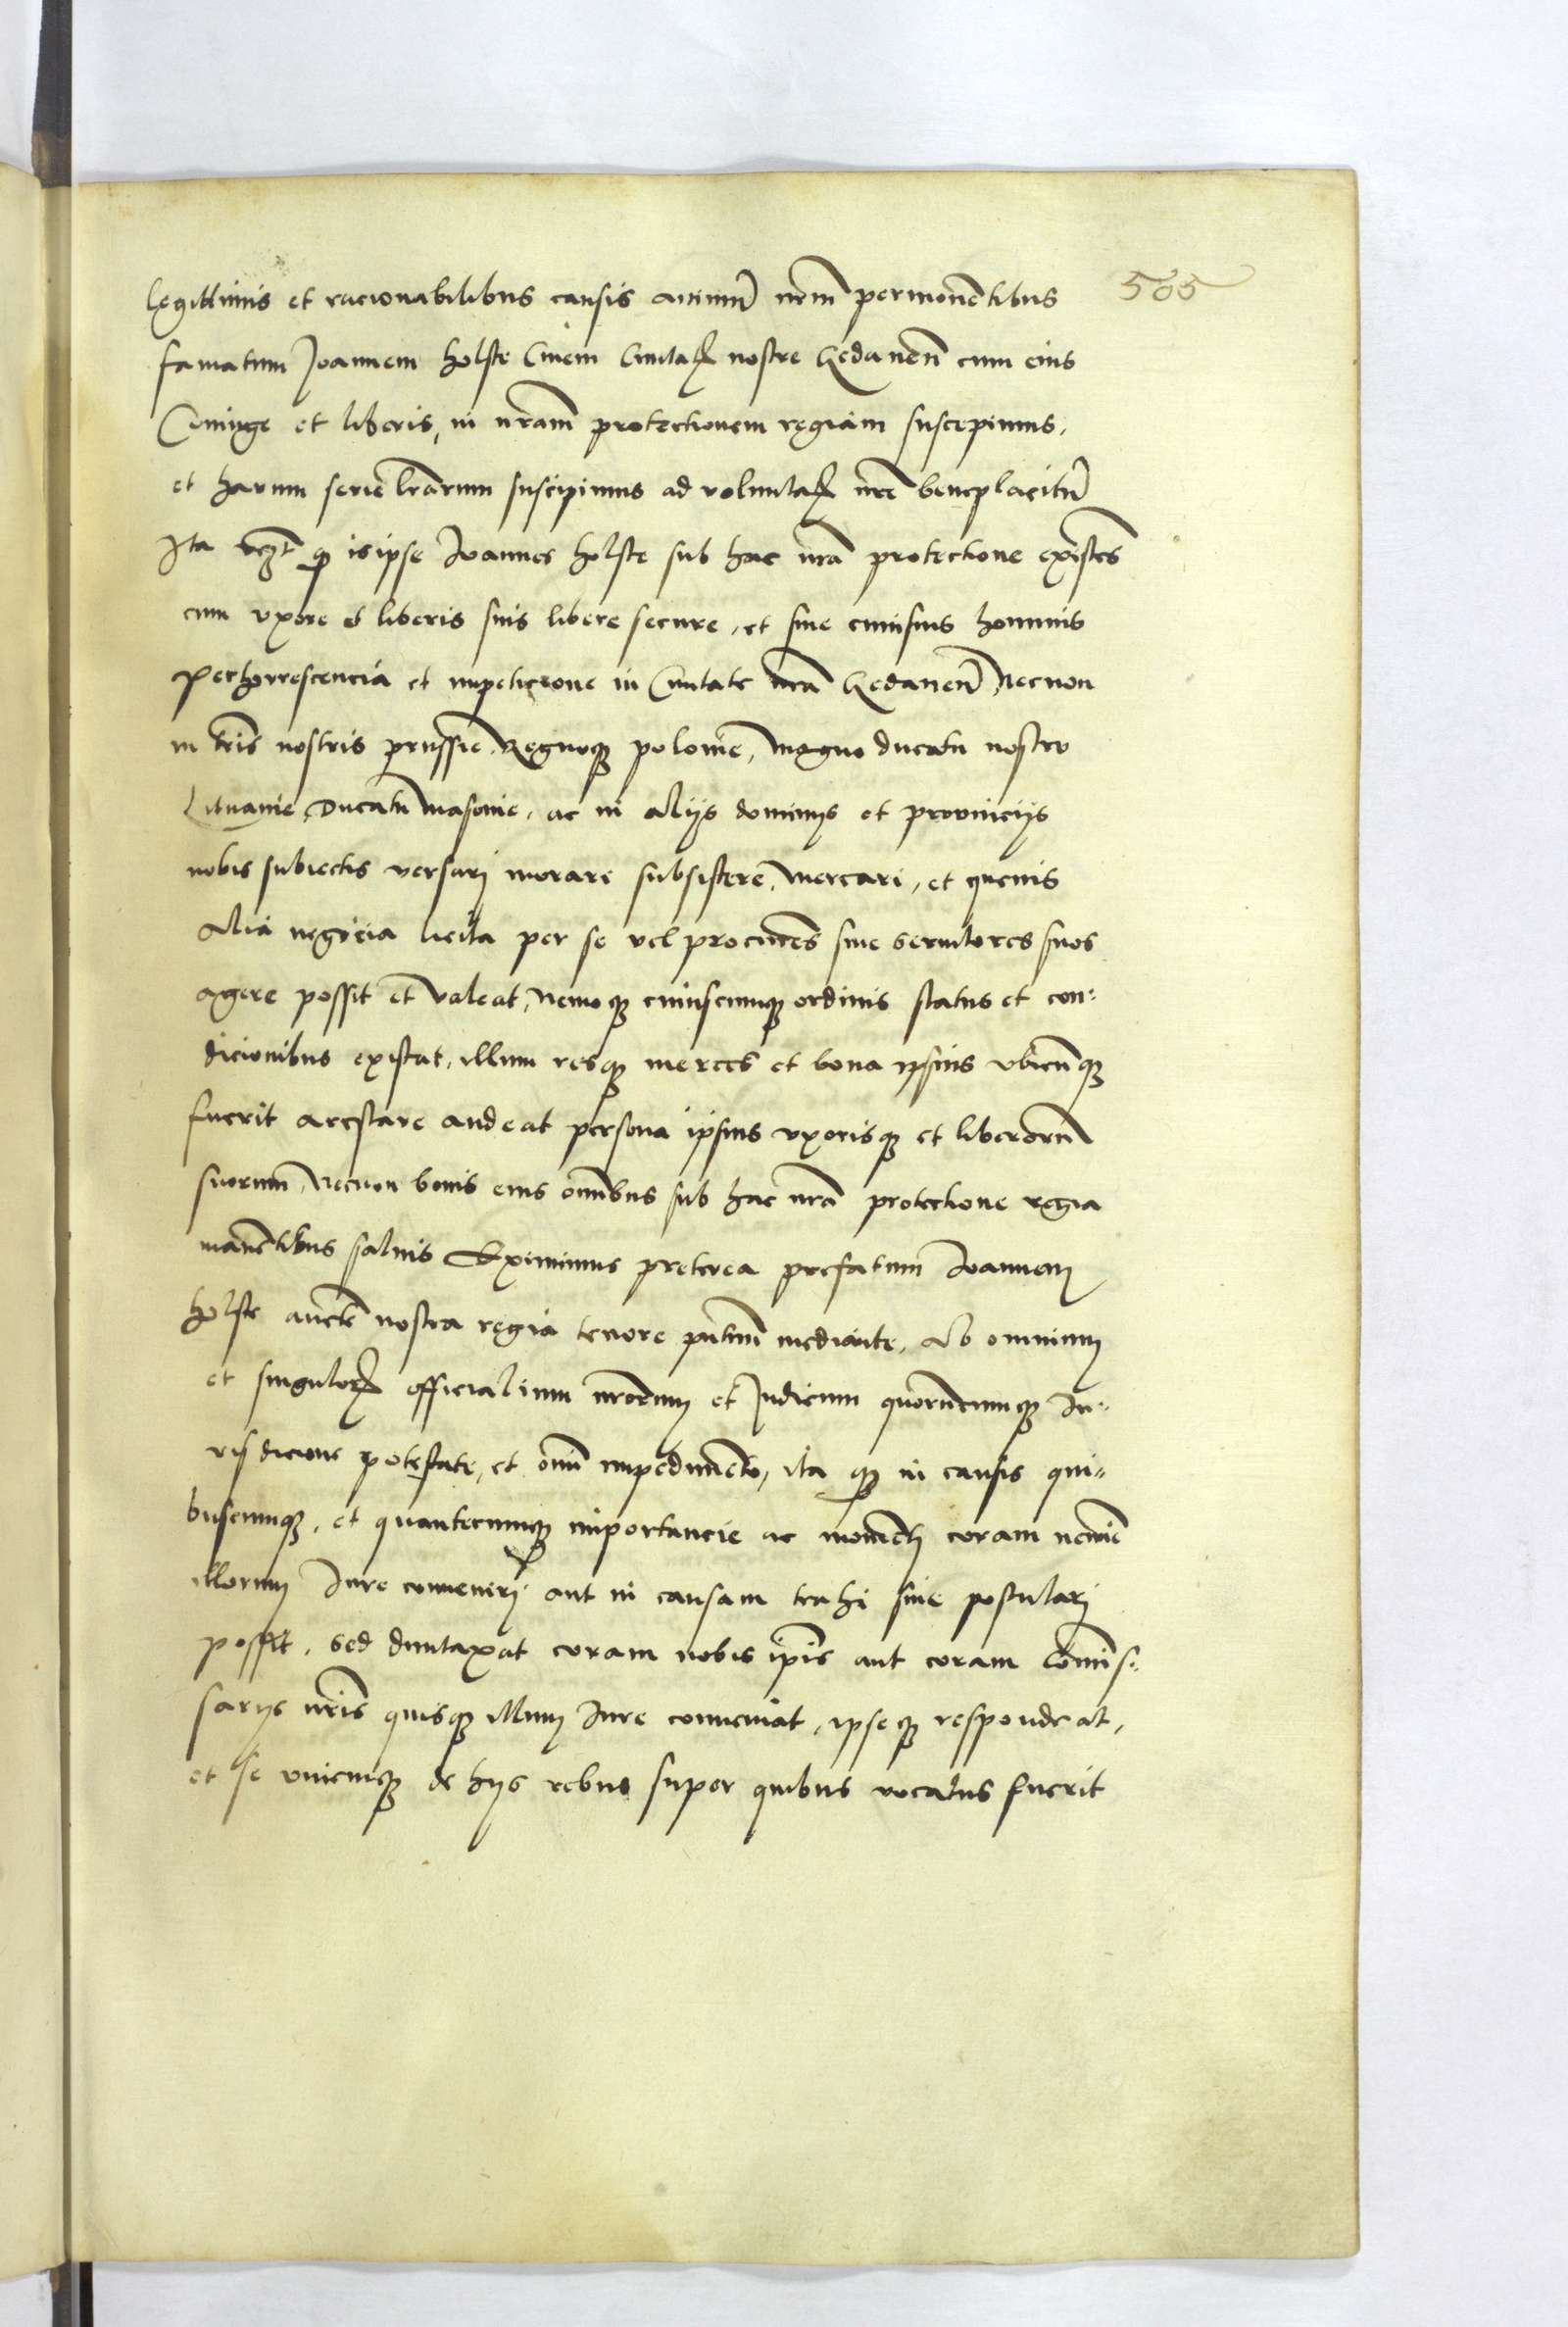 505
legittimis et racionabilibus causis animū nrm̄ permouēntibus
famatum Joannem holste Ciuem Ciuitatꝭ nostre Gedanen̄ cum eius
Coniuge et liberis, in nr̄am protectionem regiam suscepimus,
et harum serie lr̄arum suscipimus ad voluntatꝭ nr̄e beneplacitū
Ita vꝫt qꝫ is ipse Joannes holste sub hac nr̄a protectione existēs
cum vxore et liberis suis libere secure, et sine cuiusuis hominis
perhorrescencia et impeticione in Ciuitate nr̄a Gedanen̄ Necnon
in tr̄is nostris prussie, Regnoqꝫ polonie, magno ducatu nostro
Lituanie, Ducatu masouie, ac in alijs dominijs et prouincijs
nobis subiectis versari morare subsistere, mercari, et queuis
alia negocia licita per se vel procurēs siue seruitores suos
agere possit et valeat, Nemoqꝫ cuiuscunqꝫ ordinis status et con:
dicionibus existat, illum resqꝫ merces et bona ipsius vbicūnqꝫ
fuerit arestare audeat persona ipsius vxorisqꝫ et liberorū
suorum, Necnon bonis eius om̄ibus sub hac nr̄a protectione regia
manēntibus saluis Eximimus preterea prefatum Joannem
holste aucte nostra regia tenore pn̄tium mediante, Ab omnium
et singulorꝝ officialium nr̄orum et Judicum quorumcunqꝫ Ju:
risdicione potestate, et om̄i impedimento, ita qꝫ in causis qui:
buscunqꝫ, et quantecunqꝫ importancie ac momēti coram nemine
illorum Jure conueniri aut in causam trahi siue postulari
possit, sed duntaxat coram nobis ip̄is aut coram Com̄is:
sarijs nr̄is quisqꝫ illum Jure conueniat, ipseqꝫ respondeat,
et se vnicuiqꝫ de hijs rebus super quibus vocatus fuerit